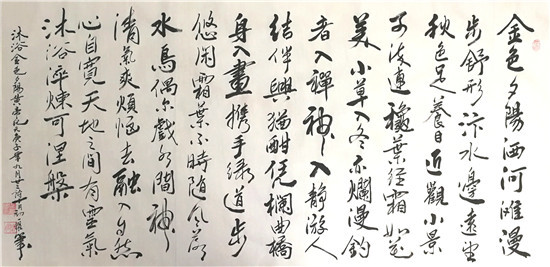 金色夕陽洒河灘漫
步舒形汴水邊遠望
秋色足養目近觀小景
連穗葉經霜如花
美小草入冬亦爛漫釣
者入禪神入静游人
结伴興猶酣凭欄曲橋
身入畫携手绿道步
悠闲霜葉不時随风落
水鳥偶尔戲水間神
清氣爽煩惱去融入自然
心自寬天地之間有靈氣
沐浴淬煉可涅槃
沐浴金色夕陽黄帝紀元庚子年九月廿三